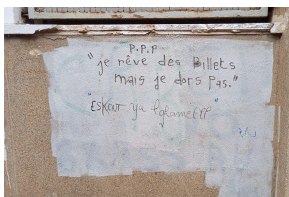 P.P.P
"je rêve des Billets
mais je dors Pas."
"Eskour ya